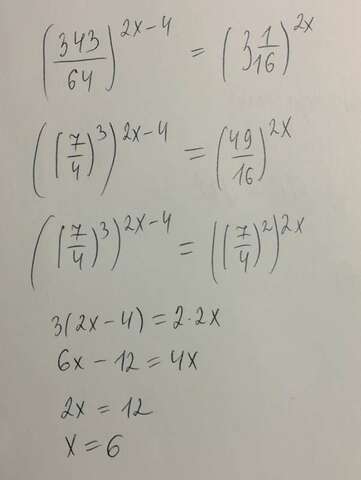 (343/64)^(2x-4) = (3 1/16)^(2x)
((7/4)^3)^(2x-4) = (49/16)^(2x)
((7/4)^3)^(2x-4) = ((7/4)^2)^(2x)
3(2x-4) = 2·2x
6x - 12 = 4x
2x = 12
x = 6